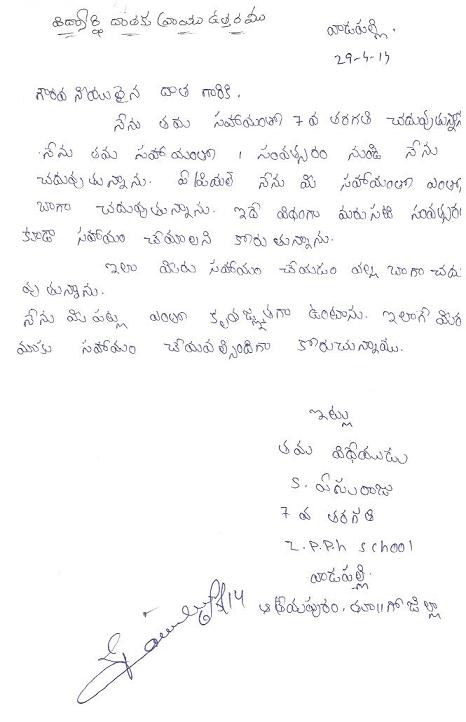 విద్యార్థి దాతకు వ్రాయు ఉత్తరము
వాడపల్లి.
29-4-14
గౌరవ నీయులైన దాత గారికి.
నేను తమ సహాయంతో 7వ తరగతి చదువుతున్నా
నేను తమ సహాయంతో 1 సంవత్సరం నుండి నేను
చదువుతున్నాను. నేను మీ సహాయంతో ఎంతో
బాగా చదువుతున్నాను. ఇదే విధంగా మరుసటి సంవత్సర
కూడా సహాయం చేయాలని కోరుతున్నాను.
ఇలా మీరు సహాయం చేయడం వల్ల బాగా చదు
వుతున్నాను.
నేను మీ పట్ల ఎంతో కృతజ్ఞతగా ఉంటాను. ఇలాగే మీర
మాకు సహాయం చేయవల్సిందిగా కోరుచున్నాము.
ఇట్లు
తమ విధేయుడు
S. యేసురాజు
7 వ తరగతి
Z.P.P.h school
వాడపల్లి.
ఆత్రేయపురం. తూ॥గో జిల్లా